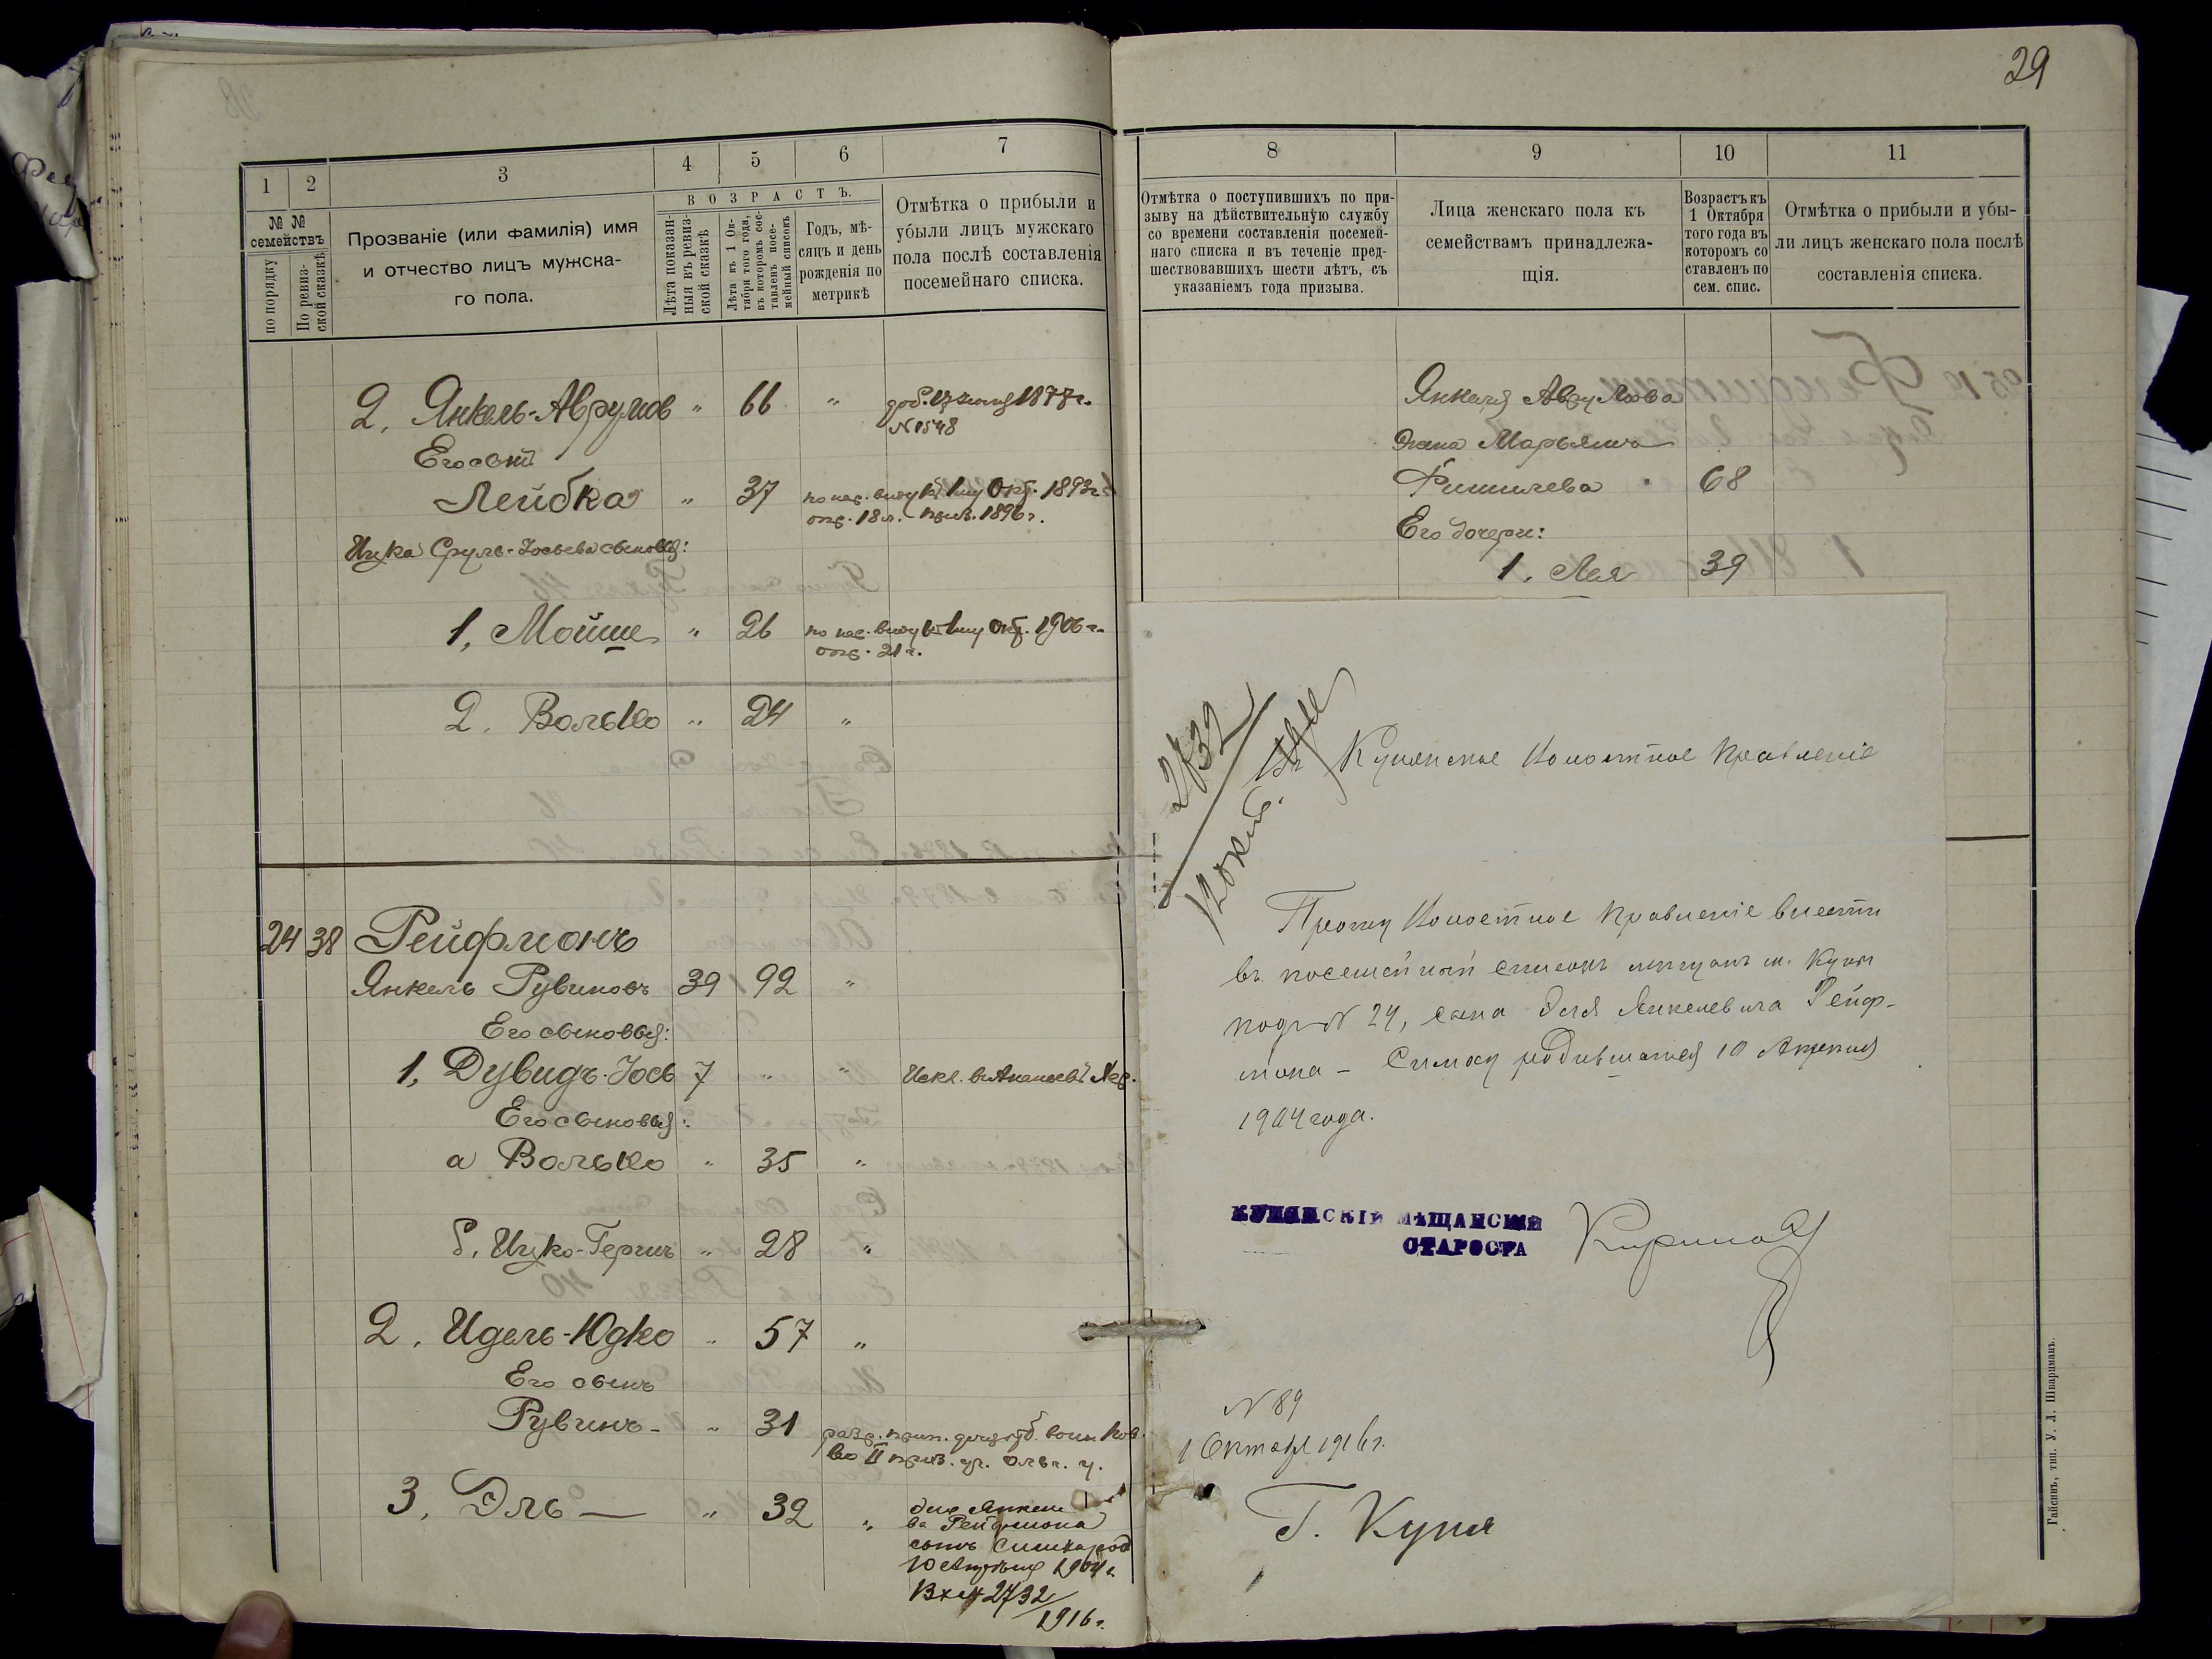 29
1
2
3
4
5
6
7
№ №
семействъ
по порядку
По ревиз-
ской сказкѣ
Прозваніе (или фамилія) имя
и отчество лицъ мужска-
го пола.
ВОЗРАСТЪ.
Лѣта показан-
ныя въ ревиз-
ской сказкѣ
Лѣта къ 1 Ок-
тября того года,
въ которомъ сос-
тавленъ посе-
мейный списокъ
Годъ, мѣ-
сяцъ и день
рожденія по
метрикѣ
Отмѣтка о прибыли и
убыли лицъ мужскаго
пола послѣ составленія
посемейнаго списка.
2. Янкель-Аврумов " 66 "
№ 1548
Его сынъ
Лейбка " 37 по нар. виду къ 1му Окт. 1893 г.
опр. 18 л. приз. 1896 г.
Ицка Сруль-Іосьева сыновья:
1, Мойше " 26 по нар. виду къ 1му Окт. 1906 г.
опр. 21 г.
2. Волько " 24 "
24 38 Рейфманъ
Янкель Рувиновъ 39 92 "
Его сыновья:
1, Дувидъ-Іось 7 " "
Его сыновья:
а Волько " 35 "
б, Ицко-Гершъ " 28 "
2, Идель-Юдко " 57 "
Его сынъ
Рувинъ - " 31
3, Эль — " 32 "
Рейфмана
сынъ Симха род
10 Апрѣля 1904 г.
Вх № 2732/1916 г.
8
9
10
11
Отмѣтка о поступившихъ по при-
зыву на дѣйствительную службу
со времени составленія посемей-
наго списка и въ теченіе пред-
шествовавшихъ шести лѣтъ, съ
указаніемъ года призыва.
Лица женскаго пола къ
семействамъ принадлежа-
щія.
Возрастъ къ
1 Октября
того года въ
которомъ со
ставленъ по
сем. спис.
Отмѣтка о прибыли и убы-
ли лицъ женскаго пола послѣ
составленія списка.
Янкеля Аврумова
жена Марьяша
Фишилева 68
Его дочери:
1. Лея 39
2732
12 окт.
Кунянское Волостное Правленіе
Прошу Волостное Правленіе внести
въ посемейный списокъ мѣщанъ м. Куни
подъ № 24, сына Эля Янкелевича Рейф-
мана - Симху родившагося 10 Апреля
1904 года.
КУНЯНСКІЙ МѢЩАНСКІЙ
СТАРОСТА
N 89
1 Октября 1916 г.
Куня
Гайсинъ, тип. У. Л. Шварцманъ.